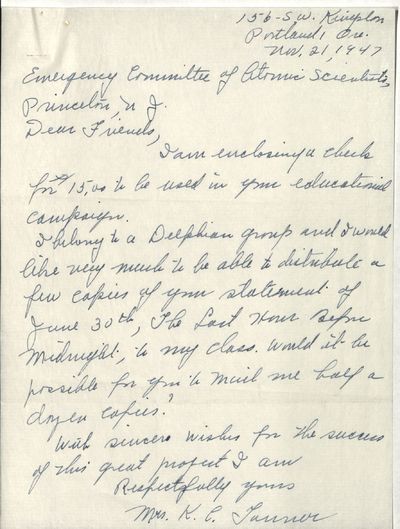 156-S.W. Kingston
Portland, Ore.
Nov. 21, 1947
Emergency Committee of Atomic Scientists,
Princeton, N J.
Dear Friends,
I am enclosing a check
for $15.00 to be used in your educational
campaign.
I belong to a Delphian group and I would
like very much to be able to distribute a
few copies of your statement of
June 30th, The Last Hour Before
Midnight, to my class. Would it be
possible for you to mail me half a
dozen copies?
With sincere wishes for the success
of this great project I am
Respectfully yours
Mrs. K. C. Tanner